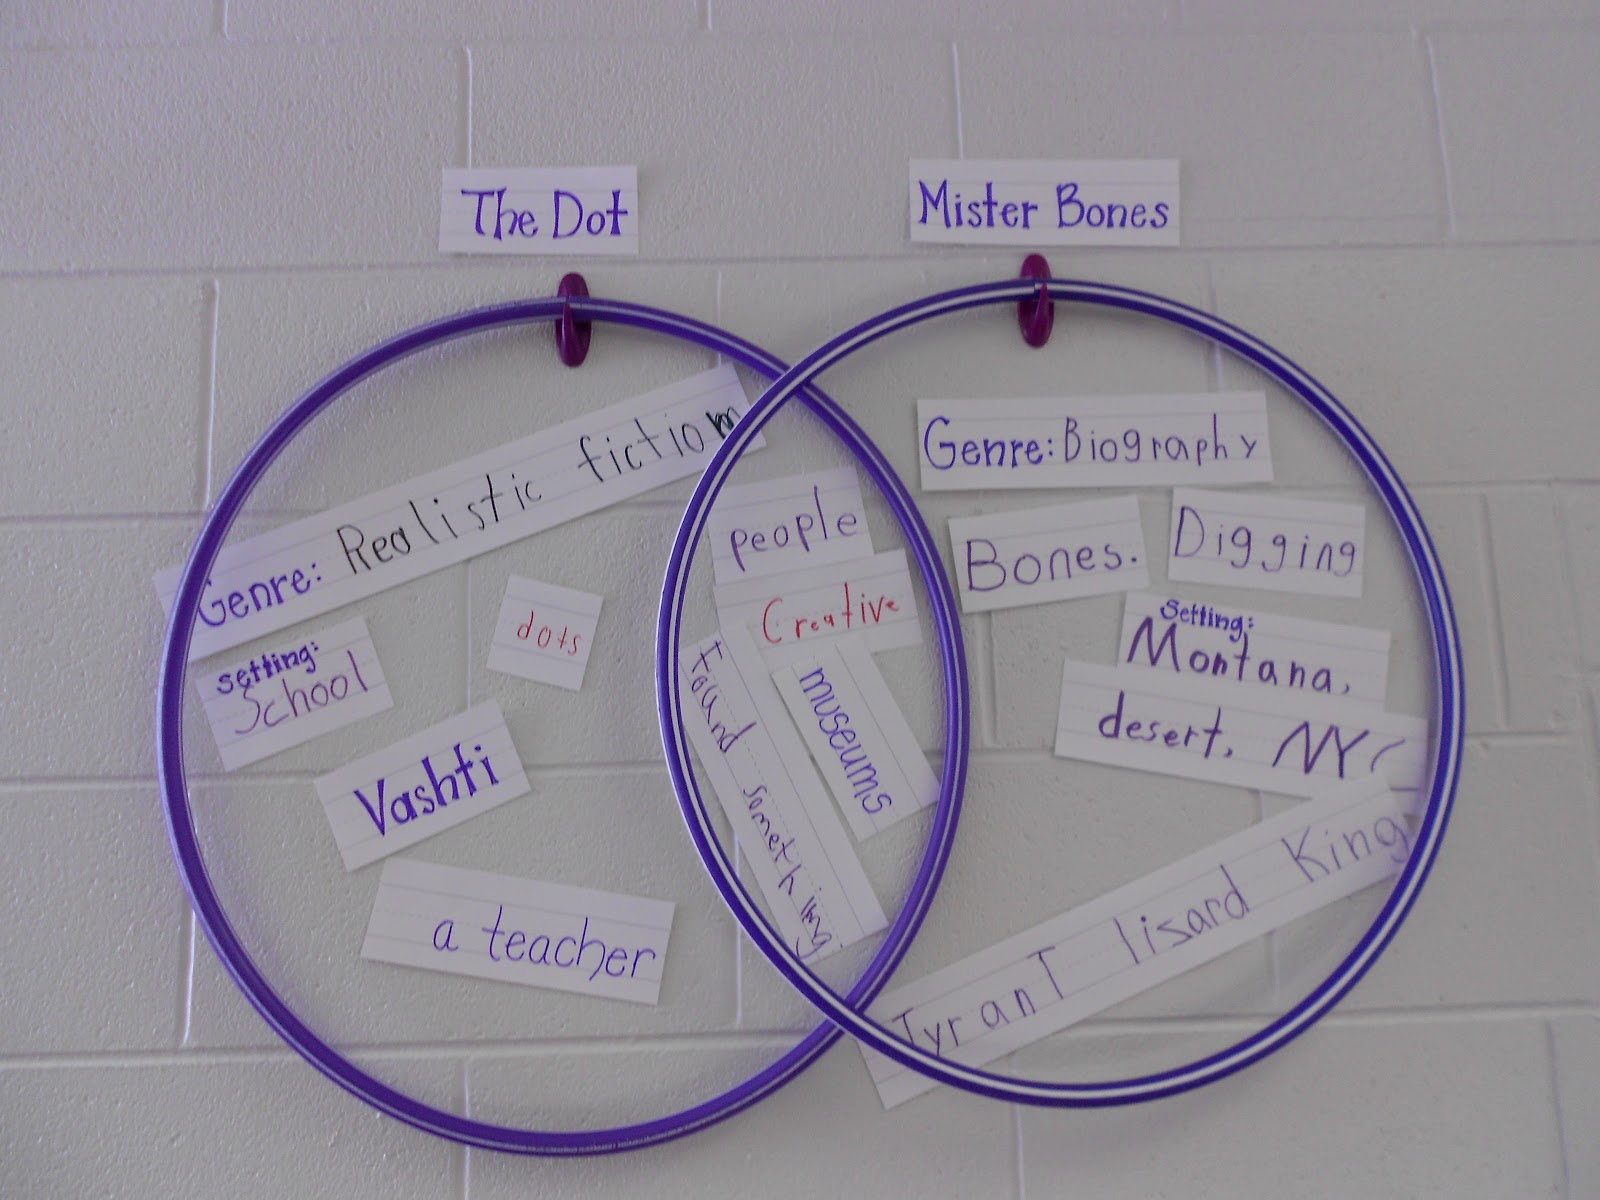 The Dot
Mister Bones
Genre: Realistic fiction
setting:
School
dots
Vashti
a teacher
people
Creative
museums
Found something
Genre: Biography
Bones.
Digging
Setting:
Montana,
desert, NYC
TyranT lisard King